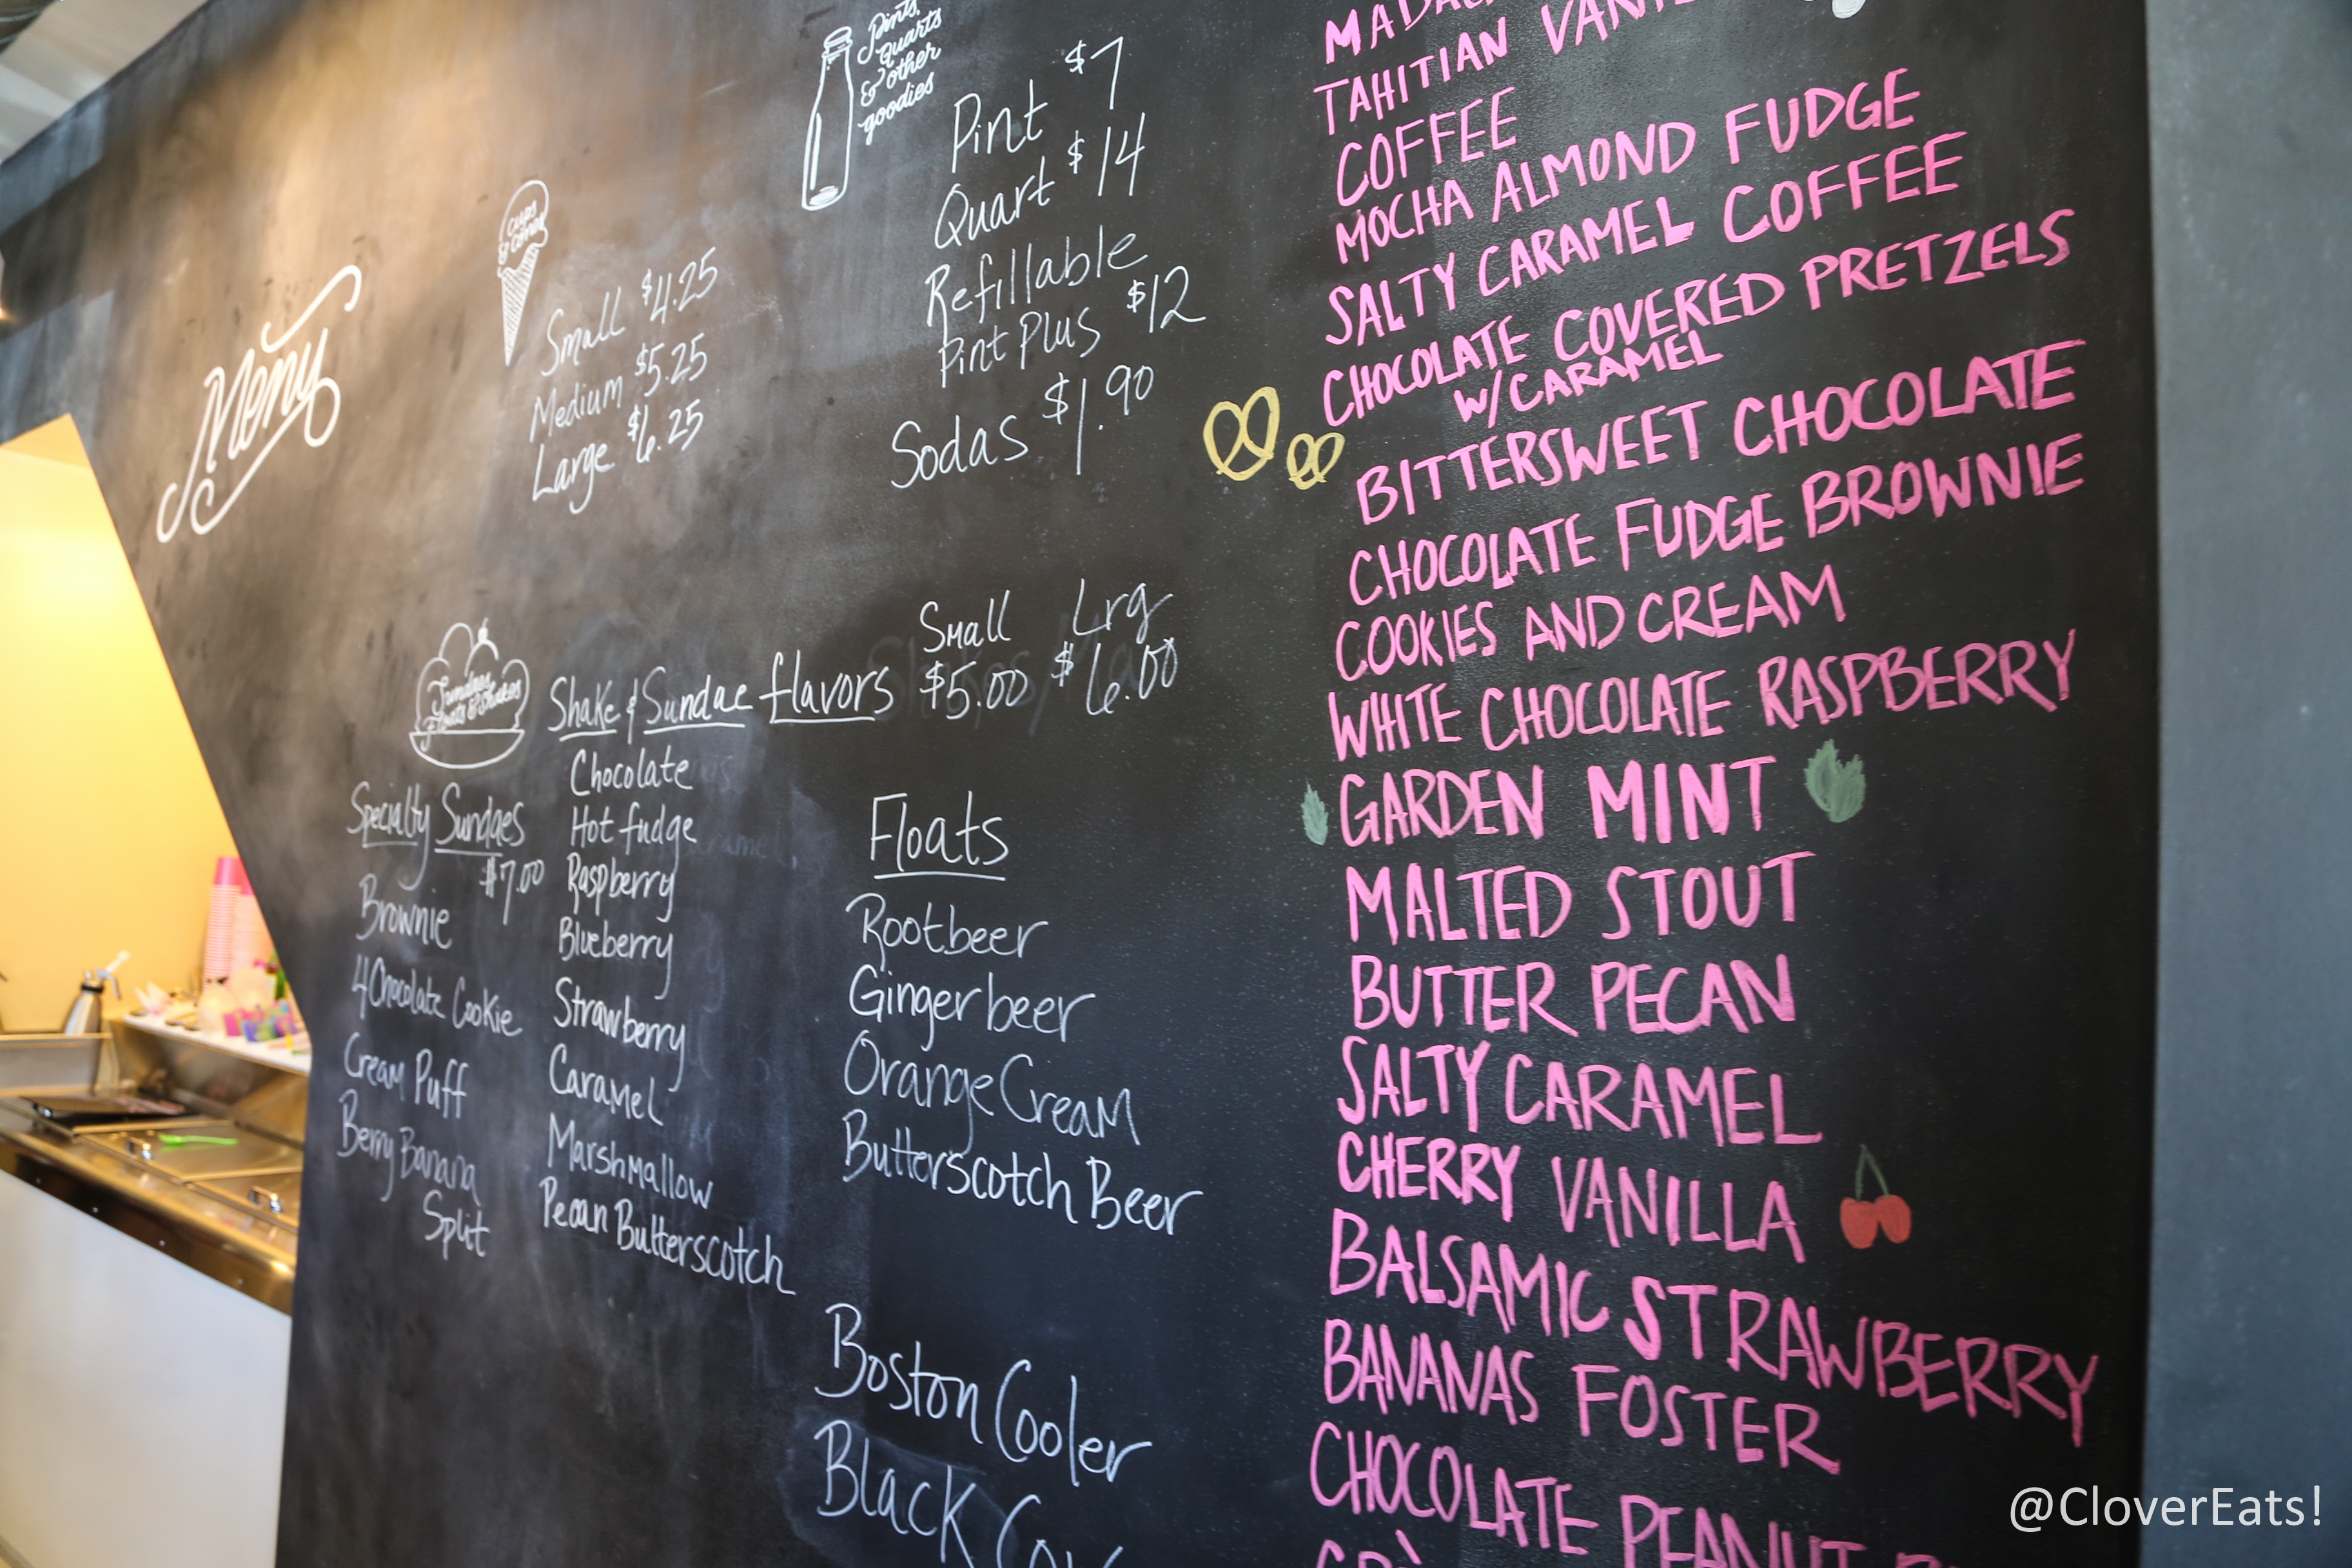 Menu
Cups
& Cones
Small $4.25
Medium $5.25
Large $6.25
Pints,
Quarts
& other
goodies
Pint $7
Quart $14
Refillable
Pint Plus $12
Sodas $1.90
Sundaes
Floats & Shakes
Specialty Sundaes
$7.00
Brownie
4 Chocolate Cookie
Cream Puff
Berry Banana
Split
Small Lrg
Shake & Sundae flavors $5.00 $6.00
Chocolate
Hot fudge
Raspberry
Blueberry
Strawberry
Caramel
Marshmallow
Pecan Butterscotch
Floats
Rootbeer
Ginger beer
Orange Cream
Butterscotch Beer
Boston Cooler
Black
TAHITIAN
COFFEE
MOCHA ALMOND FUDGE
SALTY CARAMEL COFFEE
CHOCOLATE COVERED PRETZELS
W/CARAMEL
BITTERSWEET CHOCOLATE
CHOCOLATE FUDGE BROWNIE
COOKIES AND CREAM
WHITE CHOCOLATE RASPBERRY
GARDEN MINT
MALTED STOUT
BUTTER PECAN
SALTY CARAMEL
CHERRY VANILLA
BALSAMIC STRAWBERRY
BANANAS FOSTER
CHOCOLATE PEANUT
@CloverEats!